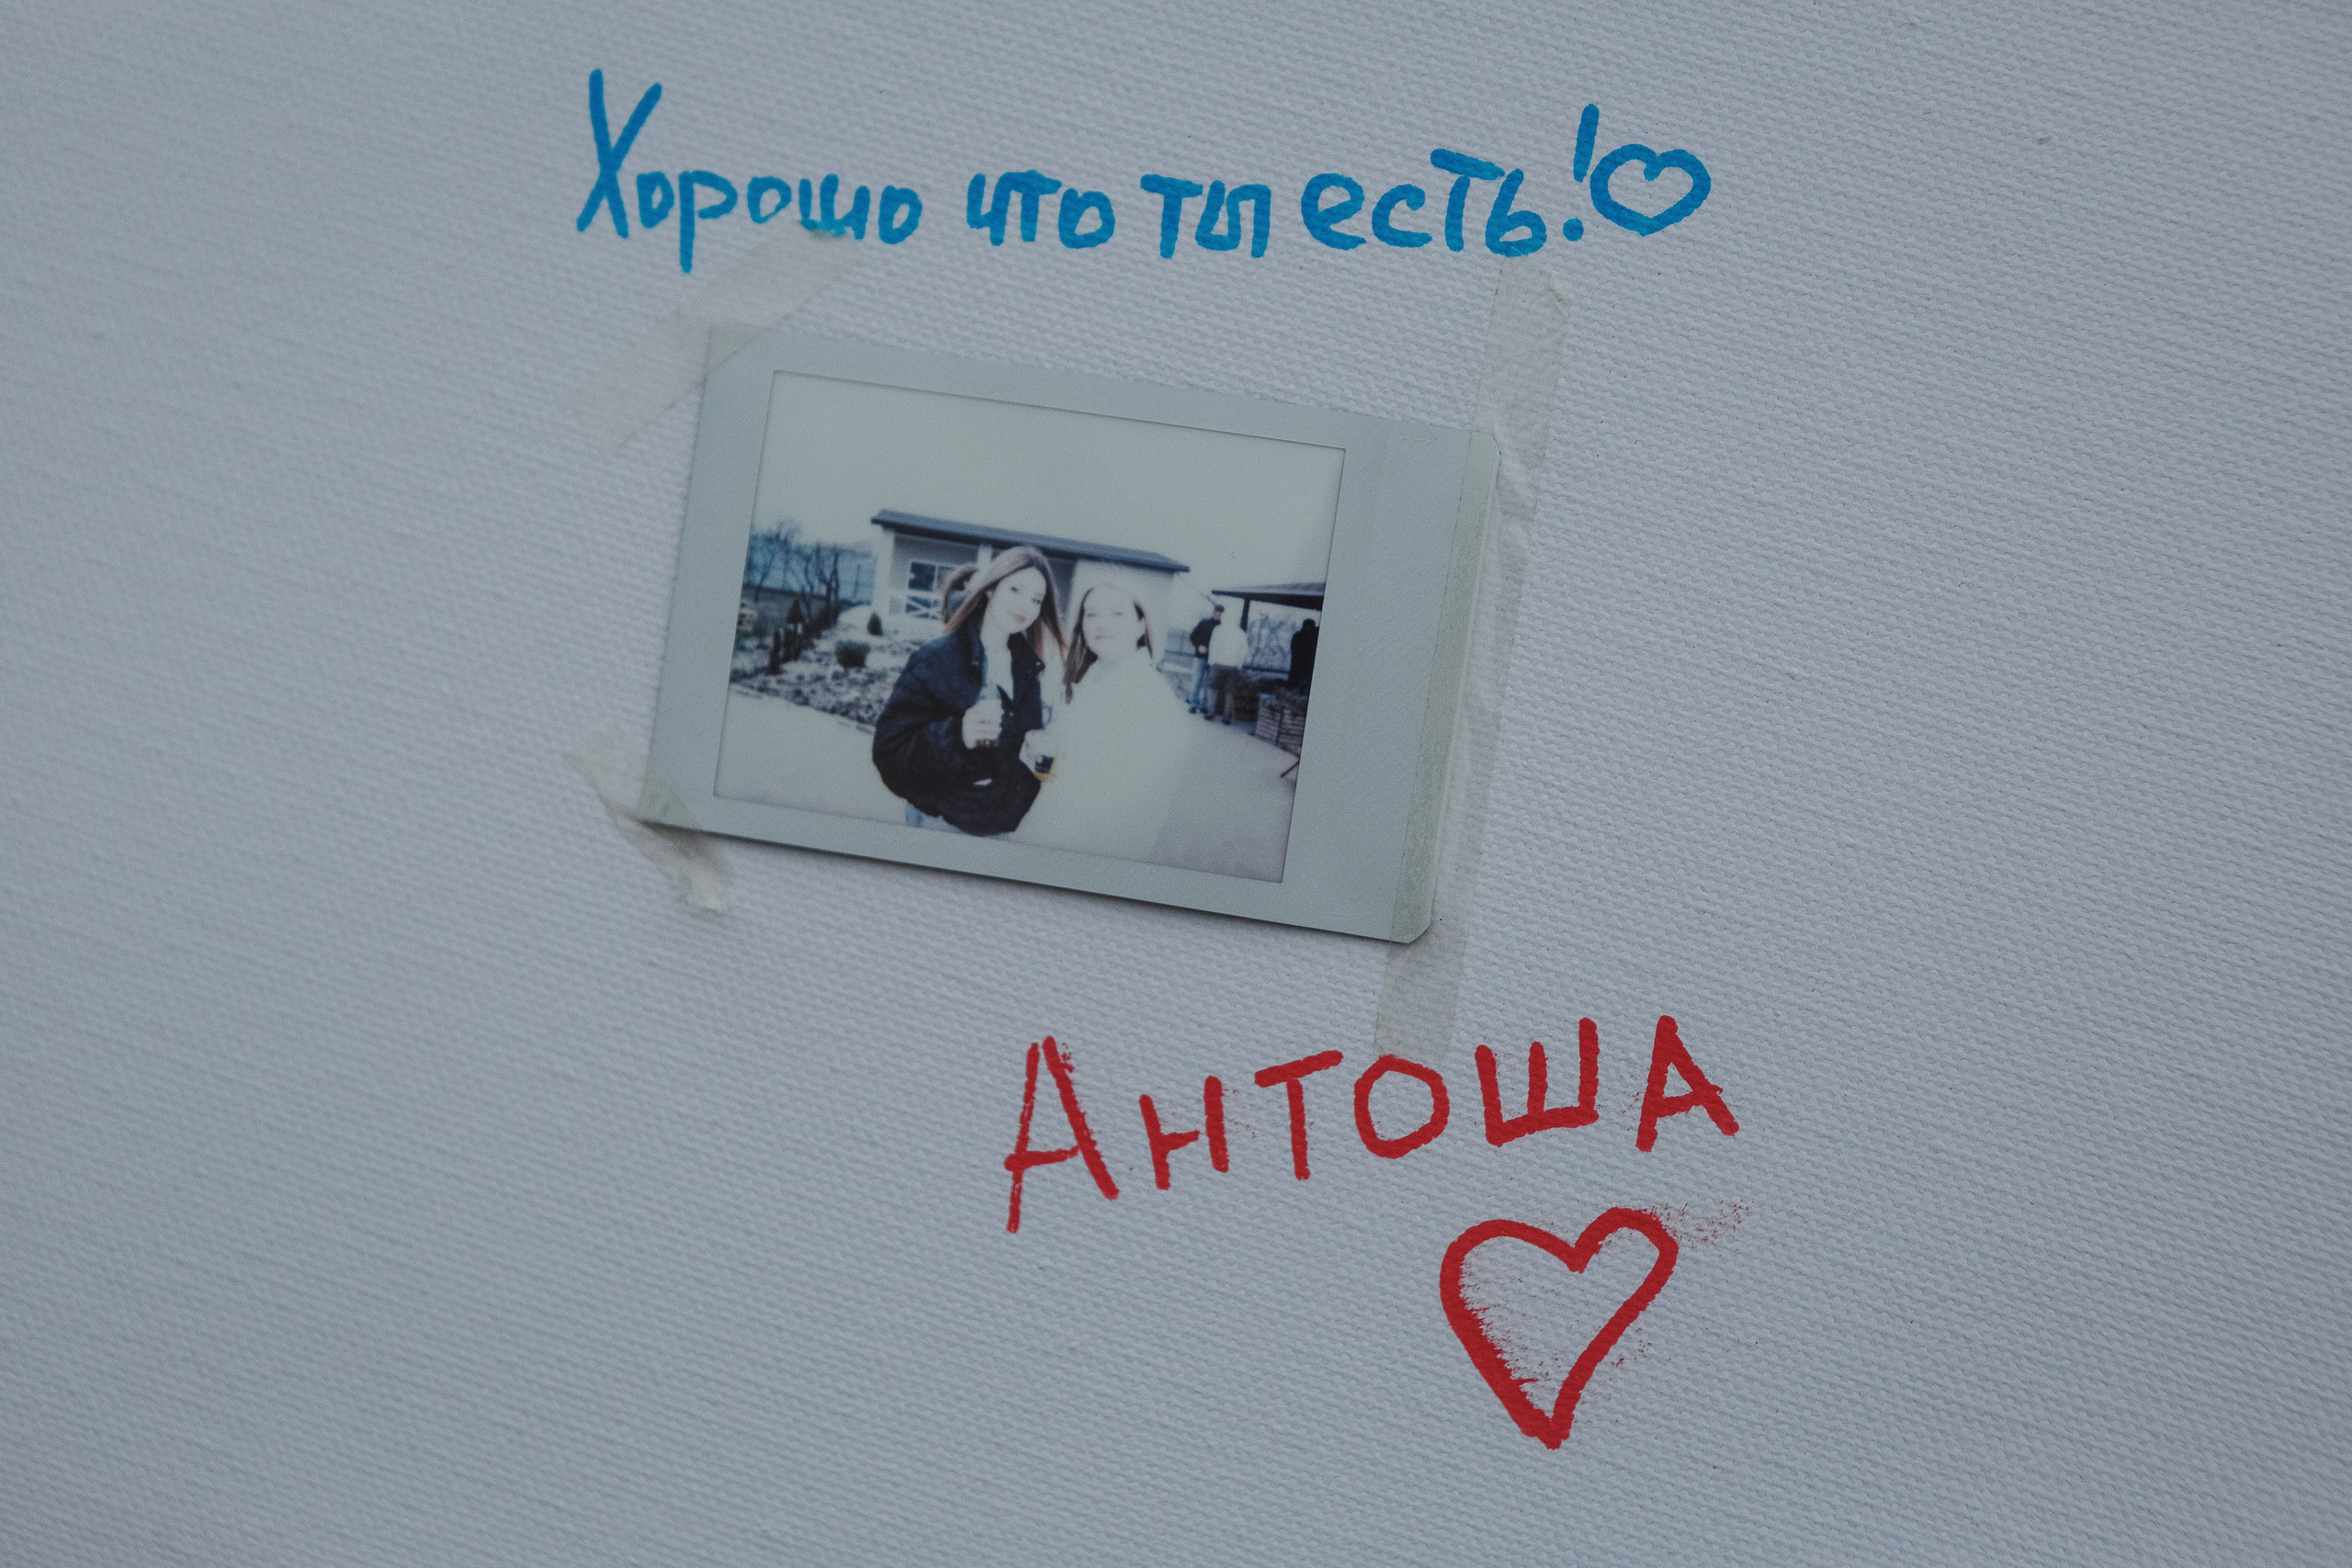 Хорошо что ты есть!♡
Антоша
♡